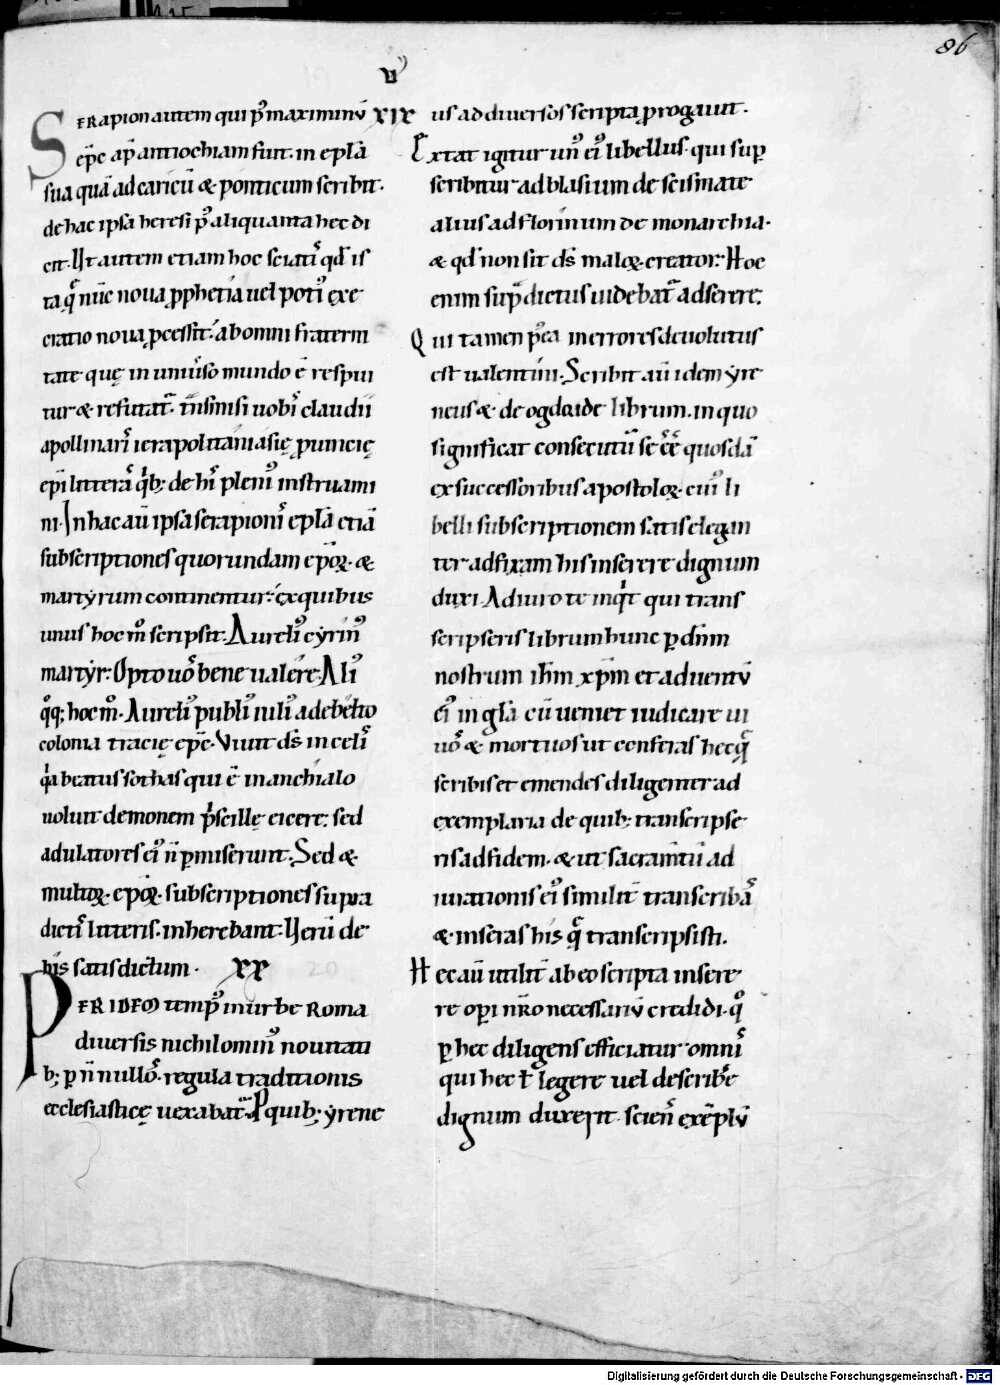 86
.v.
SERApion autem qui p᷒ maximinū XIX
ep̄c ap̄ antiochiam fuit. in epl̄a
sua quā ad caricū & ponticum scribit.
de hac ipsa heresi p᷒ aliquanta hec di
cit. Ut autem etiam hoc sciatis qd̄ is
ta q̄ nūc noua prophetia uel poti᷒ exe
cratio noua ꝓcessit. ab omni fraterni
tate quę in uniuerso mundo ē respui
tur & refutat᷒. trāsmisi uobis claudii
apollinaris ierapolitani asię prouincię
ep̄i litteras qͥb; de his pleni᷒ instruami
ni. In hac aū ipsa serapionis epl̄a etiā
subscriptiones quorundam ep̄oꝝ. &
martyrum continentur. ex quibus
unus hoc m̊ scripsit. Aureli᷒ cyrini᷒
martyr. Opto uos bene ualere. Ali᷒
q̊q; hoc m̊. Aureli᷒ publi᷒ iuli᷒ a debelto
colonia tracię ep̄c. Viuit ds̄ in celis
qͥa beatus sothas qui ē in anchialo
uoluit demonem pͥscillę eicere. sed
adulatores ei᷒ n̄ ꝑmiserunt. Sed &
multoꝝ. ep̄oꝝ. subscriptiones supra
dictis litteris. inherebant. Uerū de
his satis dictum. XX
PER IDEM temp᷒ in urbe Roma
diuersis nichilomin᷒ nouitati
b; ꝑ n̄nullos. regula traditionis
ecclesiasticę uexabat᷒. P quib; yrene
us ad diuersos scripta prorogauit.
Extat igitur un᷒ ei᷒ libellus. qui suꝑ
scribitur ad blasium de scismate
alius ad florinum de monarchia.
& qd̄ non sit ds̄ maloꝝ creator. Hoc
enim sup̄dictus uidebat᷒ adserere.
Qui tamen p᷒ea in errores deuolutus
est ualentini. Scribit aū idem yre
neus & de ogdoade librum. in quo
significat consecutū se ēē quosdā
ex successoribus apostoloꝝ. cui᷒ li
belli subscriptionem satis elegan
ter adfixam his inserere dignum
duxi. Adiuro te inqͥt qui trans
scripseris librum hunc ꝑ dn̄m
nostrum ih̄m xp̄m et aduentū
ei᷒ in gl̄a cū ueniet iudicare ui
uos & mortuos ut conferas hec q̄
scribis et emendes diligenter ad
exemplaria de quib; transcripse
ris ad fidem. & ut sacram̄tū ad
iurationis ei᷒ similit̄ transcribas
& inseras his q̄ transcripsisti.
Hec aū utilit̄ ab eo scripta insere
re oꝑi nr̄o necessariū credidi. q᷒
ꝑ hec diligens efficiatur omnis
qui hec ł legere uel describere
dignum duxerit. sciens exēplū
Digitalisierung gefördert durch die Deutsche Forschungsgemeinschaft - DFG